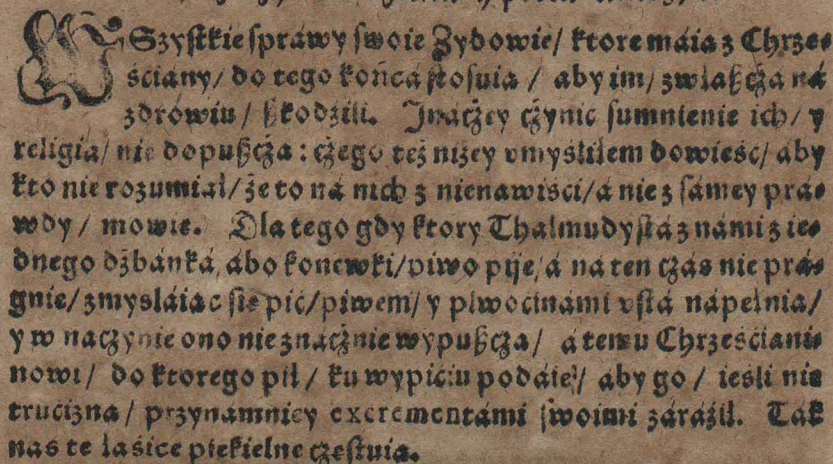 WSzystkie sprawy swoie Zydowie/ ktore maia z Chrze⸗
ściány/ do tego końcá stosuia / aby im/ zwłaszczá ná
zdrowiu / szkodzili. Inaczey czynic sumnienie ich/ y
religia/ nie dopuszcza : czego też niżey vmyśliłem dowieść/ aby
kto nie rozumiał/ że to ná nich z nienawiści/ á nie z sámey prá⸗
wdy / mowie. Dla tego gdy ktory Thalmudystá z námi z ie⸗
dnego dzbánká, abo konewki/ piwo pije/ á na ten czás nie prá⸗
gnie/ zmysláiac sie pić/ piwem/ y plwocinámi vstá nápełnia/
y w naczynie ono nieznácznie wypuszcza/ á temu Chrześciáni⸗
nowi/ do ktorego pił/ ku wypiciu podáie/ aby go / ieśli nie
trucizna/ przynamniey excrementámi swoimi záráźił. Tak
nas te łásice piekielne czestuia.